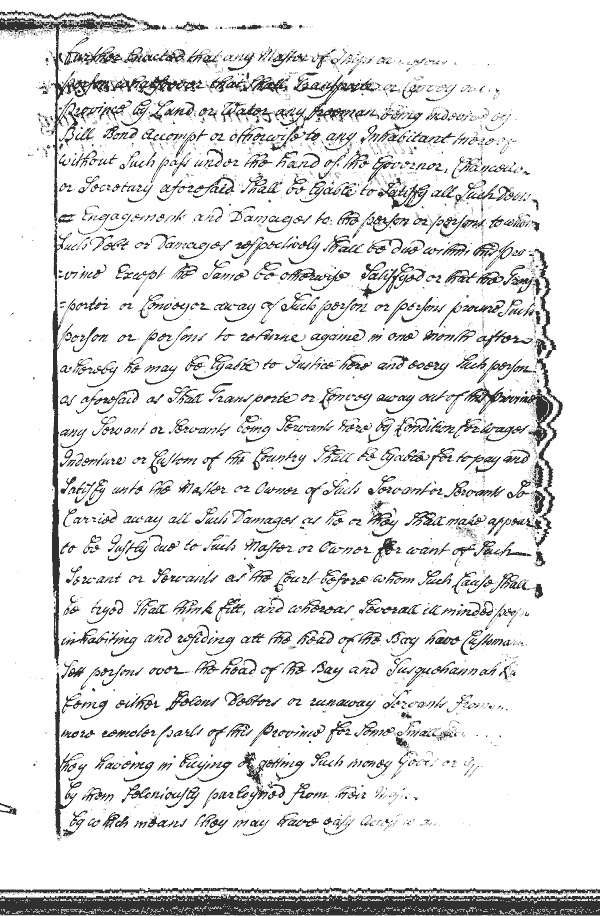 further Enacted that any Master of Shipp or
person whatsoever that Shall Transporte or Convey out
Province by Land or Water any freeman being indebted by
Bill Bond accompt or otherwise to any Inhabitant thereof
without Such pass under the hand of the Governor, Chancellor
or Secretary aforesaid Shall be lyable to Satisfy all Such Debts
Engagements and Damages to the person or persons to whom
Such Debt or Damages respectively Shall be due within this Pro-
-vince Except the Same be otherwise Satisfyed or that the Trans
-porter or Conveyor away of Such person or persons procure Such
person or persons to returne againe in one month after
whereby he may be lyable to Justice here and every Such person
as aforesaid as Shall Transporte or Convey away out of this Province
any Servant or Servants being Servants here by Condition for wages
Indenture or Custom of the Country Shall be lyable for to pay and
Satisfy unto the Master or Owner of Such Servant or Servants So
Carried away all Such Damages as he or they Shall make appear
to be Justly due to Such Master or Owner for want of Such
Servant or Servants as the Court before whom Such Cause Shall
be tryed Shall think fitt, and whereas Severall ill minded
inhabiting and residing att the head of the Bay have
Sett persons over the head of the Bay and Susquehannah
being either felons Debtors or runaway Servants from
more remoter parts of this Province for Some Small
they haveing in buying or getting Such money Goods or
by them feloniously purloyned from their
by which means they may have easy